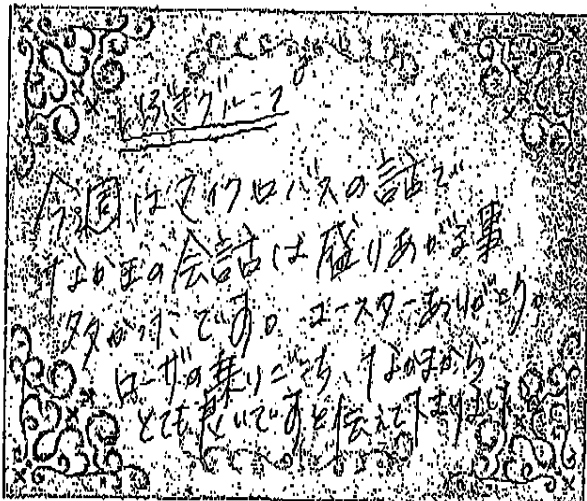 しらさぎグループ
今回はマイクロバスの話で
なかまの会話は盛りあがる事
多かったです。コースターありがとう。
ローザの乗りごこち、なかまから
とても良いですと伝えて下さりました